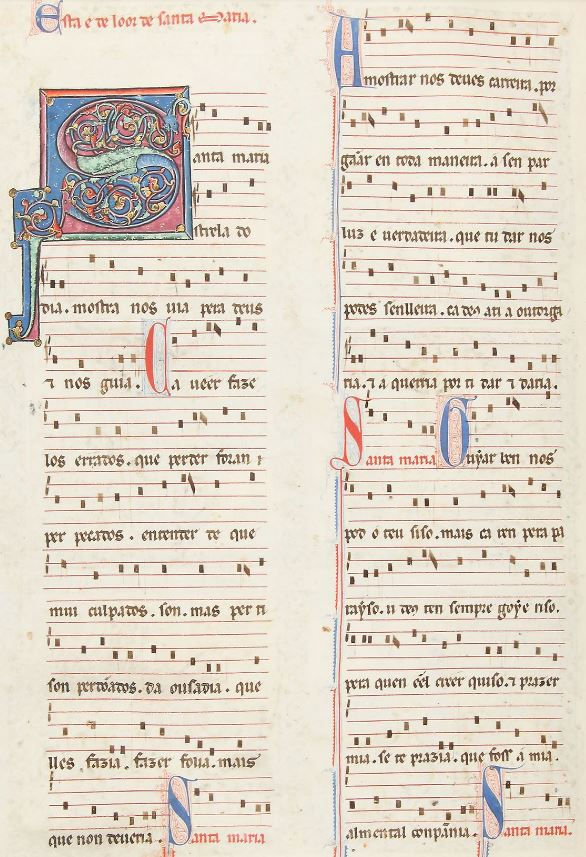 Esta e de loor de santa Maria.
Santa maria
strela do
dia. mostra nos uia pera deus
⁊ nos guia. Ca ueer faze
los errados. que perder foran
per pecados. entender de que
mui culpados. son. mas per ti
son perdõados. da ousadia. que
lles fazia. fazer folia. mais
que non deueria. Santa maria
Amostrar nos deues carreira. por
gãar en toda maneira. a sen par
luz e uerdadeira. que tu dar nos
podes senlleira. ca deꝯ ati a outorga
ria. ⁊ a querria por ti dar ⁊ daria.
Santa maria Guyar ben nos
pod o teu siso. mais ca ren pera pa
rayso. u deꝯ ten sempre goye riso.
pera quen eel creer quiso. ⁊ prazer
mia. se te prazia. que foss a mia.
alma en tal conpannia. Santa maria.